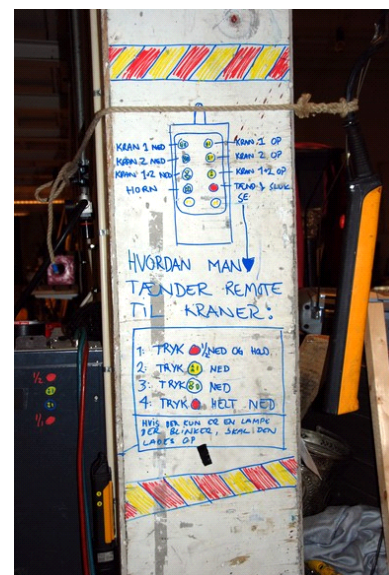 KRAN 1 NED
KRAN 2 NED
KRAN 1+2 NED
HORN
KRAN 1 OP
KRAN 2 OP
KRAN 1+2 OP
TÆND & SLUK
SE
HVORDAN MAN
TÆNDER REMOTE
TIL KRANER:
1: TRYK 1/2 NED OG HOLD
2: TRYK NED
3: TRYK NED
4: TRYK HELT NED
HVIS DER KUN ER EN LAMPE
DER BLINKER, SKAL DEN
LADES OP
1/2
1/1